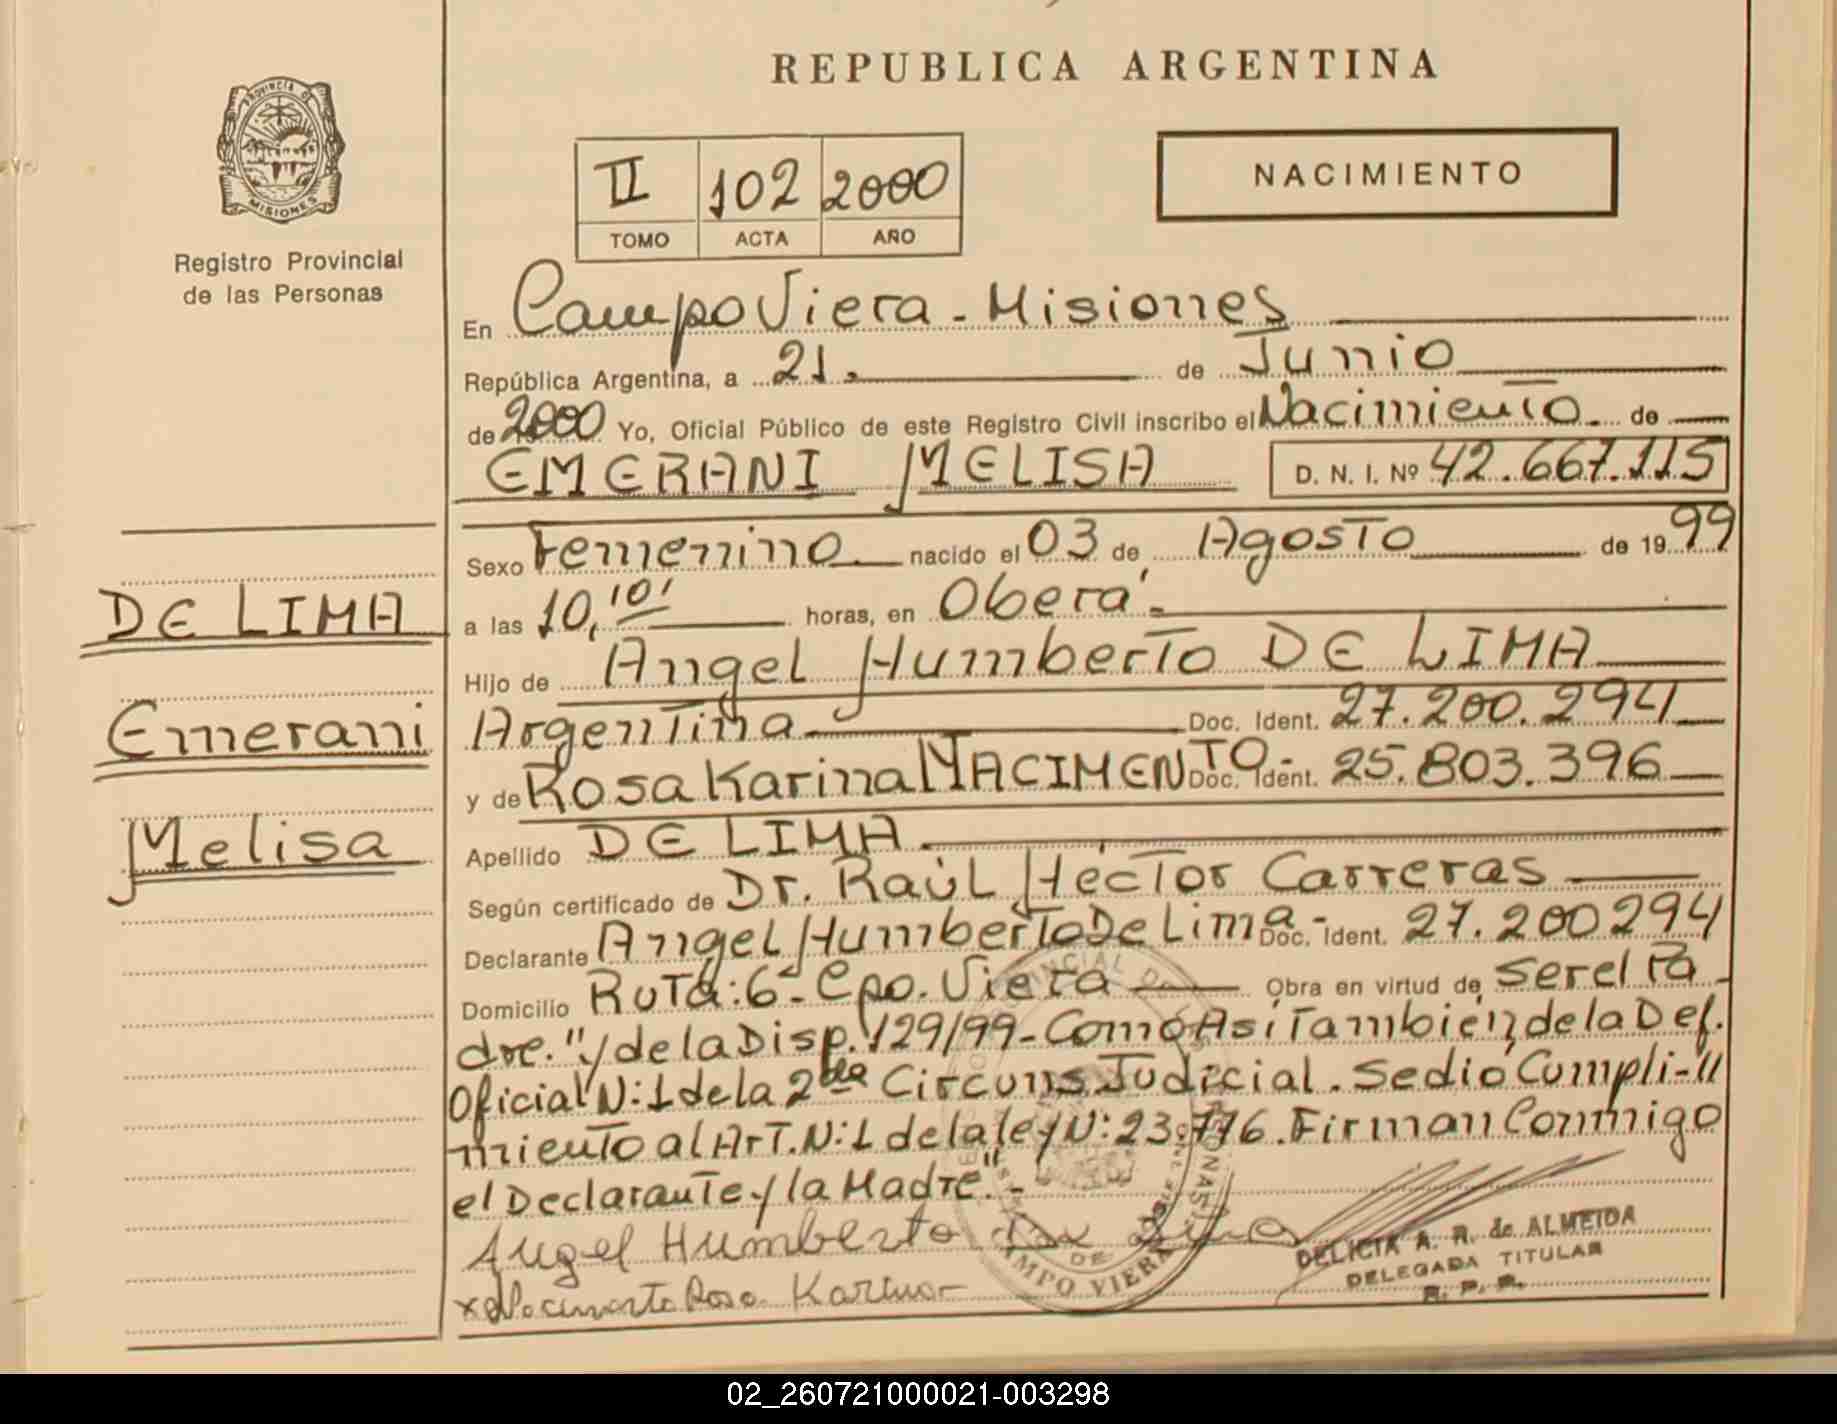 REPUBLICA ARGENTINA
PROVINCIA DE
MISIONES
Registro Provincial
de las Personas
II 102 2000
TOMO ACTA AÑO
NACIMIENTO
En Campo Viera - Misiones
República Argentina, a 21. de Junio
de 2000 Yo, Oficial Público de este Registro Civil inscribo el Nacimiento. de
EMERANI MELISA D. N. I. Nº 42.667.115
Sexo Femenino. nacido el 03 de Agosto de 1999
a las 10,10' horas, en Oberá.-
Hijo de Angel Humberto DE LIMA
Argentina Doc. Ident. 27.200.294
y de Rosa Karina NACIMENTO.- Doc. Ident. 25.803.396
Apellido DE LIMA.
Según certificado de Dr. Raúl Héctor Carreras
Declarante Angel Humberto De Lima.- Doc. Ident. 27.200294
Domicilio Ruta: 6- Cpo. Viera Obra en virtud de ser el Pa-
dre." y de la Disp. 129/99- Como Así También de la Def.
Oficial N:1 de la 2da Circuns. Judicial. Se dió Cumpli-"
miento al Art. N:1 de la ley N: 23.776. Firman Conmigo
el Declarante y la Madre".-
Angel Humberto De Lima
x Nacimento Rosa Karina-
DELICIA A. R. de ALMEIDA
DELEGADA TITULAR
R. P. P.
DE LIMA
Emerani
Melisa
CAMPO VIERA
02_260721000021-003298